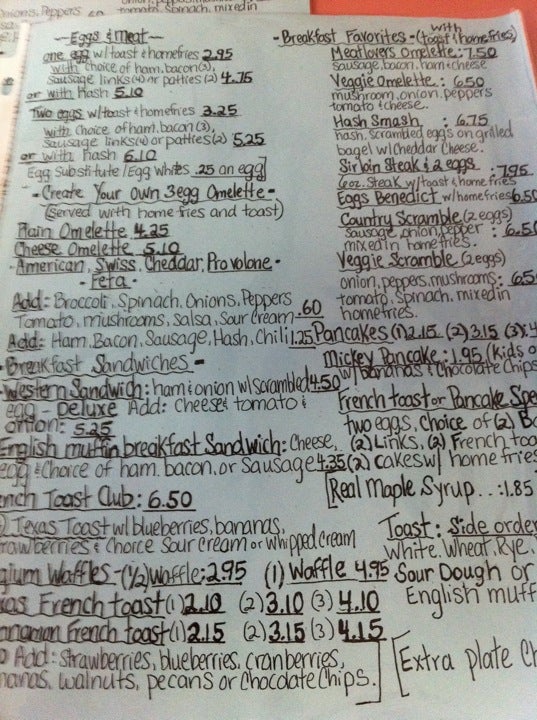 onions, Peppers
tomato, Spinach, mixed in
~Eggs & Meat~
one egg w/toast & homefries 2.95
with choice of ham, bacon(3),
sausage links(4) or patties(2) 4.75
or with Hash 5.10
Two eggs w/toast & homefries 3.25
with choice of ham, bacon(3),
sausage links(4) or patties(2) 5.25
or with hash 6.10
Egg Substitute/Egg whites .25 an egg]
-Create Your Own 3egg Omelette-
(served with home fries and toast)
Plain Omelette 4.25
Cheese Omelette 5.10
-American, Swiss, Cheddar, Provolone-
-Feta-
Add: Broccoli, Spinach, Onions, Peppers
Tomato, mushrooms, salsa, Sour Cream .60
Add: Ham, Bacon, Sausage, Hash, Chili 1.25
-Breakfast Sandwiches-
Western Sandwich: ham & onion w/scrambled 4.50
egg - Deluxe Add: Cheese & tomato &
onion: 5.25
English muffin breakfast Sandwich: Cheese,
egg & choice of ham, bacon, or sausage 4.35
nch Toast Club: 6.50
) Texas Toast w/ blueberries, bananas,
rawberries & Choice Sour Cream or Whipped cream
gium Waffles-(1/2)Waffle: 2.95 (1) Waffle 4.95
xas French toast (1) 2.10 (2) 3.10 (3) 4.10
French toast (1) 2.15 (2) 3.15 (3) 4.15
Add: Strawberries, blueberries, cranberries,
nanas, walnuts, pecans or Chocolate Chips.]
-Breakfast Favorites- with (toast & homefries)
Meatlovers Omelette: 7.50
sausage, bacon, ham & cheese
Veggie Omelette: 6.50
mushroom, onion, peppers
tomato & cheese.
Hash Smash : 6.75
hash, scrambled eggs on grilled
bagel w/Cheddar Cheese.
Sirloin Steak & 2 eggs : 7.95
6oz. Steak w/toast & home fries
Eggs Benedict w/homefries 6.50
Country Scramble (2 eggs)
sausage, onion, pepper : 6.50
mixed in home fries.
Veggie Scramble (2 eggs)
onion, peppers, mushrooms: 6.5
tomato, Spinach, mixed in
homefries.
Pancakes (1) 2.15 (2) 3.15 (3) 4
Mickey Pancake: 1.95 (Kids o
w/ bananas & Chocolate Chips
French toast or Pancake Spe
two eggs, choice of (2) B
(2) Links, (2) French toa
(2) cakes w/ home fries
[Real Maple Syrup..: 1.85
Toast: Side order
White, Wheat, Rye,
Sour Dough or
English muff
[Extra Plate Ch